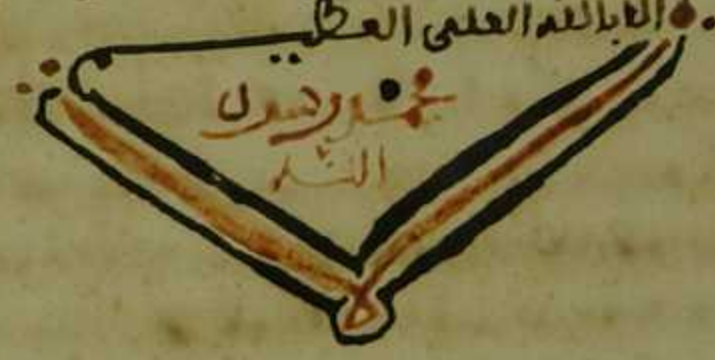 الا بالله العلي العظيم
محمد رسول
الله